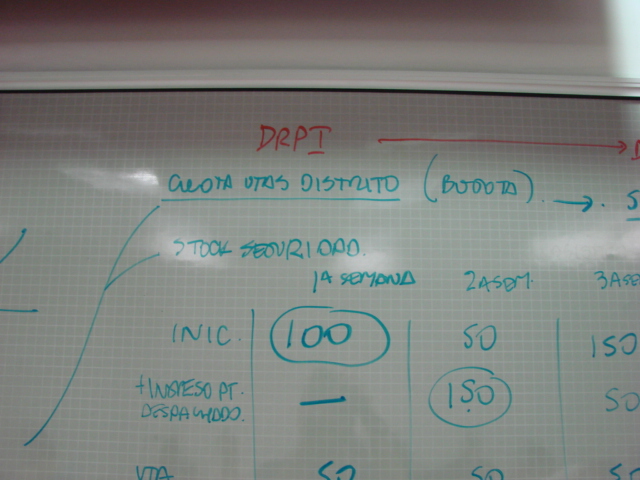 DRPI
CUOTA VTAS DISTRITO (BOGOTA).
STOCK SEGURIDAD.
1A SEMANA 2A SEM. 3A SE
INIC. 100 50 150
+INGRESO PT. — 150 50
DESPACHADO.
VTA 50 50 50